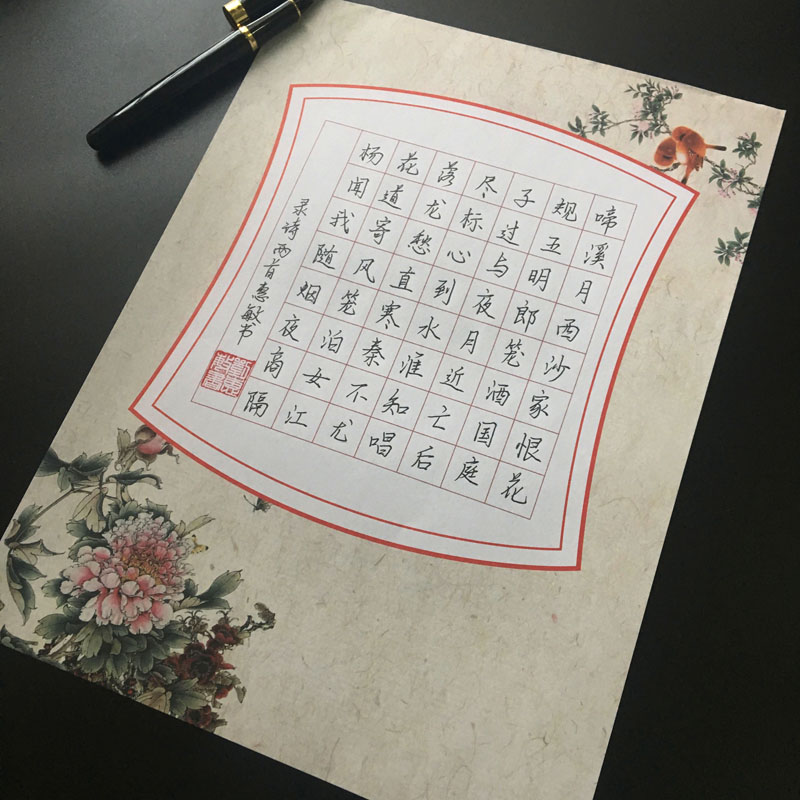 杨花落尽子规啼
闻道龙标过五溪
我寄愁心与明月
随风直到夜郎西
烟笼寒水月笼沙
夜泊秦淮近酒家
商女不知亡国恨
隔江尤唱后庭花
录诗两首惠敏书